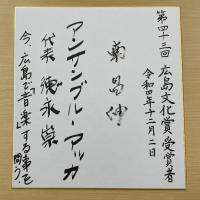 第四十三回 広島文化賞受賞者
令和四年十二月二日
アンサンブル・アッカ
代表 徳永崇
今、広島で「音楽」する事を問う